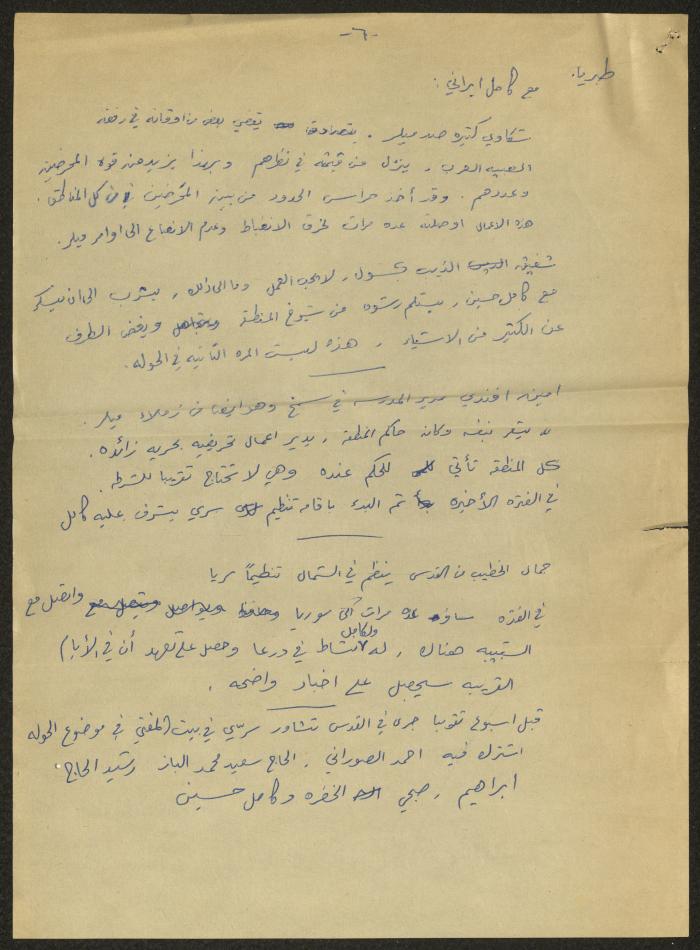 -٦-
طبريا.
مع كامل ايراني :
شكاوي كثيره ضد ميلر . يتصادق يقضي بعض من اوقاته في رفقة
العصبيه العرب ، ينزل من قيمته في نظرهم وبهذا يزيد من قوة المحرضين
وعددهم . وقد أخذ حراس الحدود من بين المحرضين في كل المناطق .
هذه الاعمال اوصلته عده مرات لخرق الانضباط وعدم الانصياع الى اوامر ميلر .
شفيق الذيب كسول ، لا يحب العمل وما الى ذلك ، يشرب الى ان يسكر
مع كامل حسين ، يستلم رشوه من شيوخ المنطقة ويغض الطرف
عن الكثير من الاشياء ، هذه ليست المره الثانيه في الحوله .
امين افندي مدير المدرسه في سمخ وهو ايضا من زملاء ميلر .
يعتبر نفسه وكانه حاكم المنطقة ، يدير اعمال تحريضيه بحريه زائده .
كل المنطقه تأتي للحكم عنده وهي لا تحتاج تقريبا للشرطه .
في الفتره الأخيره تم البدء باقامة تنظيم سري يشرف عليه كامل
جمال الخطيب من القدس ينظم في الشمال تنظيماً سريا
في الفتره سافر عده مرات الى سوريا واتصل مع
الشبيبه هناك ، له ولكامل نشاط في درعا وحصل على تعهد أن في الأيام
القريبه سيحصل على اخبار واضحه .
قبل اسبوع تقريبا جرى في القدس تشاور سرّي في بيت المفتي في موضوع الحوله
اشترك فيه احمد الصوراني ، الحاج سعيد محمد الباز رشيد الحاج
ابراهيم ، صبحي الخضره وكامل حسين